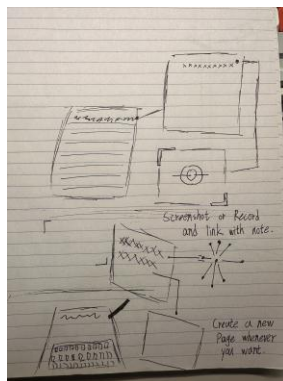 Screenshot or Record
and link with note.
Create a new
Page whenever
you want.